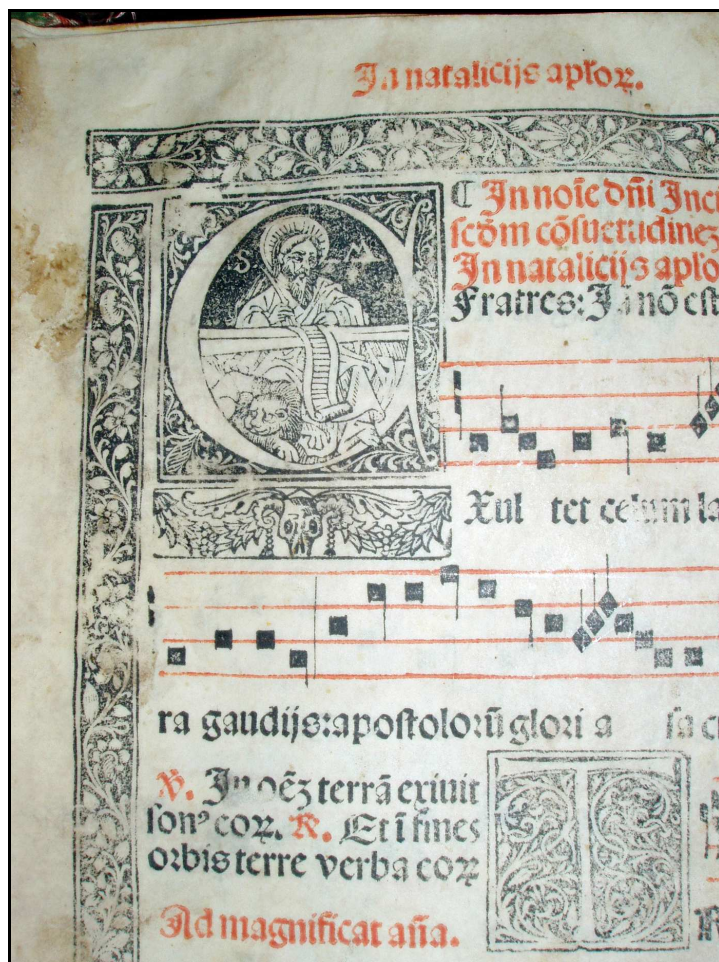 In natalicijs apl'oꝝ.
S. M
¶ In noīe dn̄i Inci
scd̄m cōsuetudinez
In natalicijs aplo
Fratres: Iā nō est
Xul tet celum la
ra gaudijs:apostolorū glori a sa
℣. In oēz terrā exiuit
sonꝰ eoꝝ. ℟. Et ī fines
orbis terre verba eoꝝ
T
Ad magnificat an̄a.